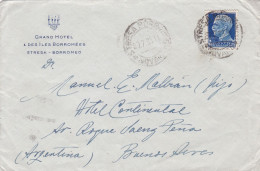 GRAND HOTEL
& DES ILES BORROMÉES
STRESA - BORROMEO
Dr
Manuel E. Malbrán (hijo)
Hotel Continental
Av. Roque Saenz Peña
(Argentina) Buenos Aires